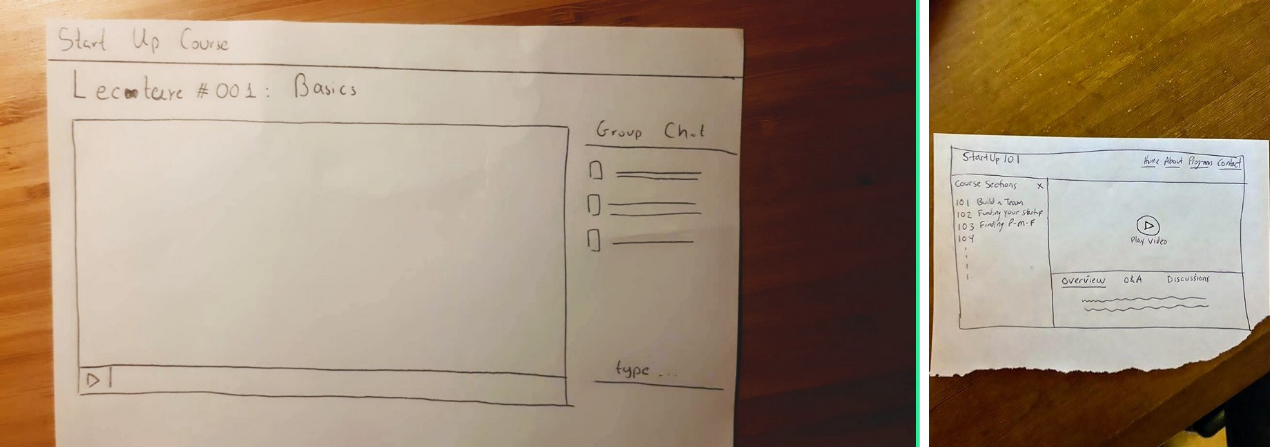 Start Up Course
Lecture #001: Basics
Group Chat
type...
StartUp 101
Home About Programs Contact
Course Sections X
101 Build a Team
102 Funding your startup
103 Finding P-M-F
104
Play Video
Overview Q&A Discussions